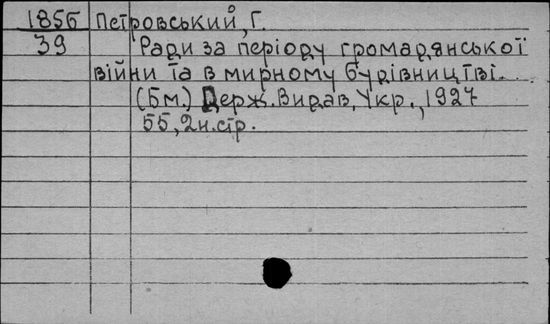 1856 Петровський, Г.
39 Ради за періоду громадянської
війни та в мирному будівництві.
(Бм.) Держ. Видав. Укр., 1927
55, 2н. стр.